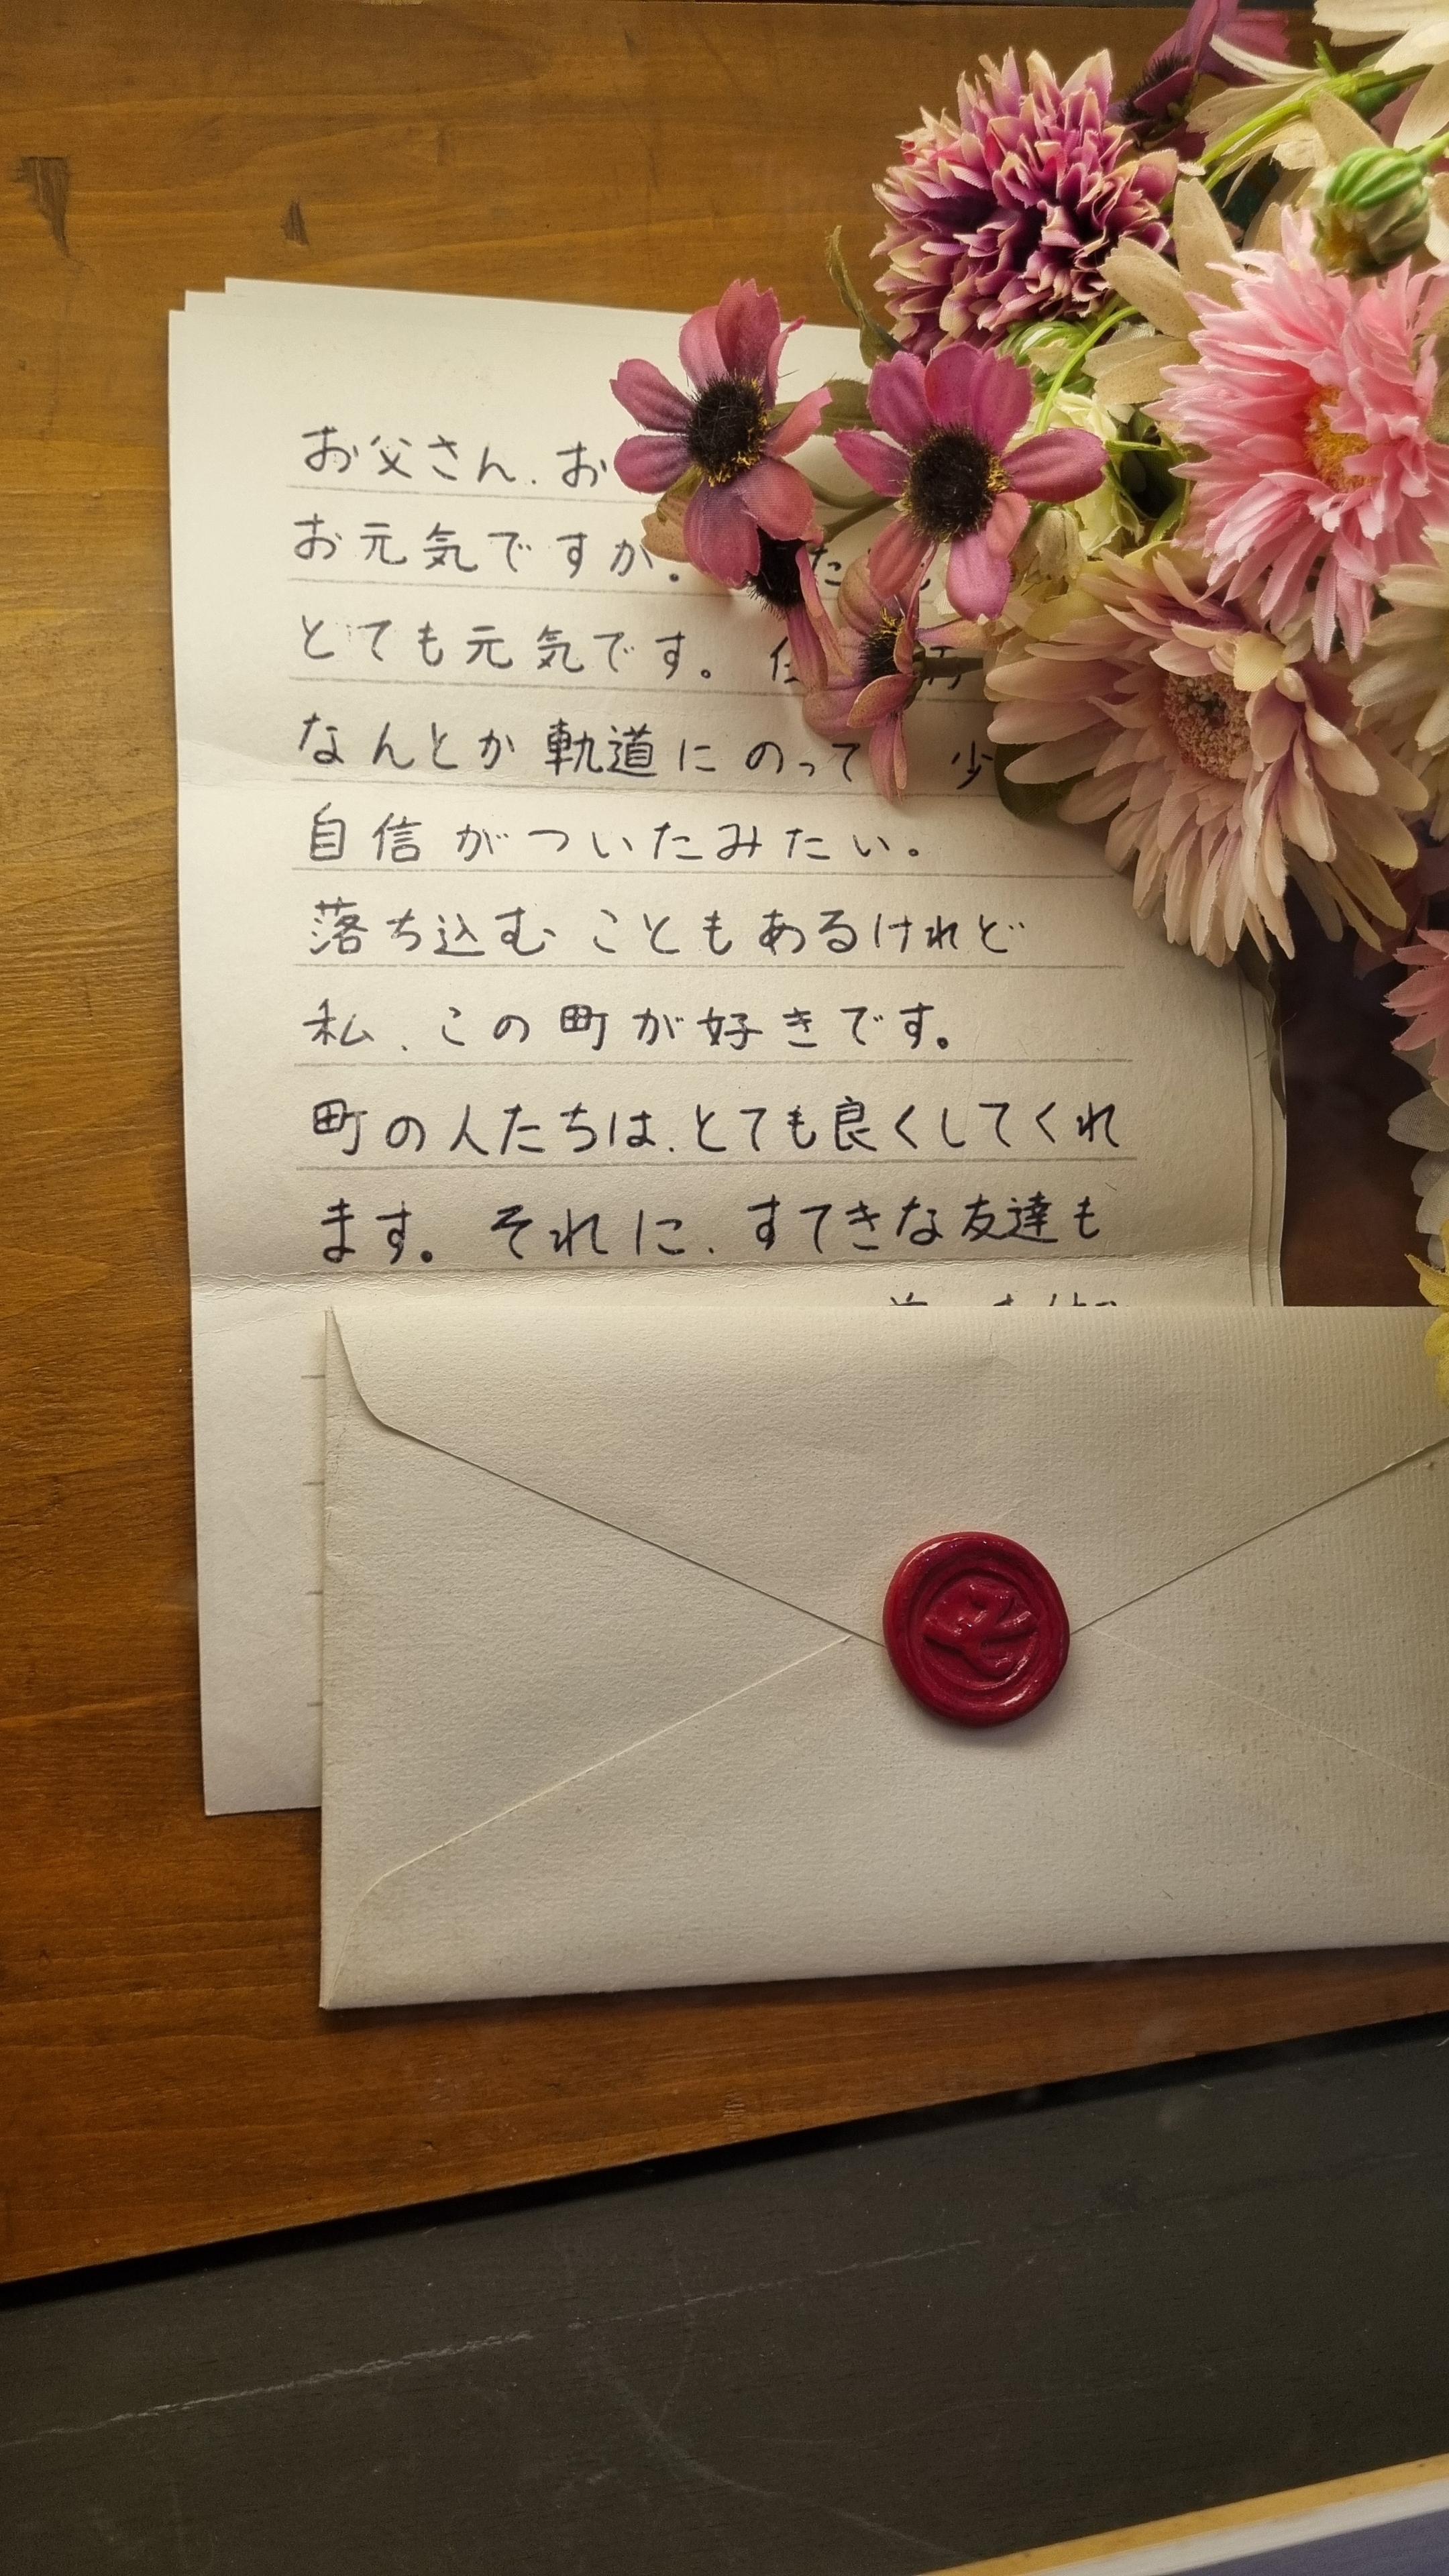 お父さん、お
お元気ですか。
とても元気です。
なんとか軌道にのって 少
自信がついたみたい。
落ち込むこともあるけれど
私、この町が好きです。
町の人たちは、とても良くしてくれ
ます。それに、すてきな友達も